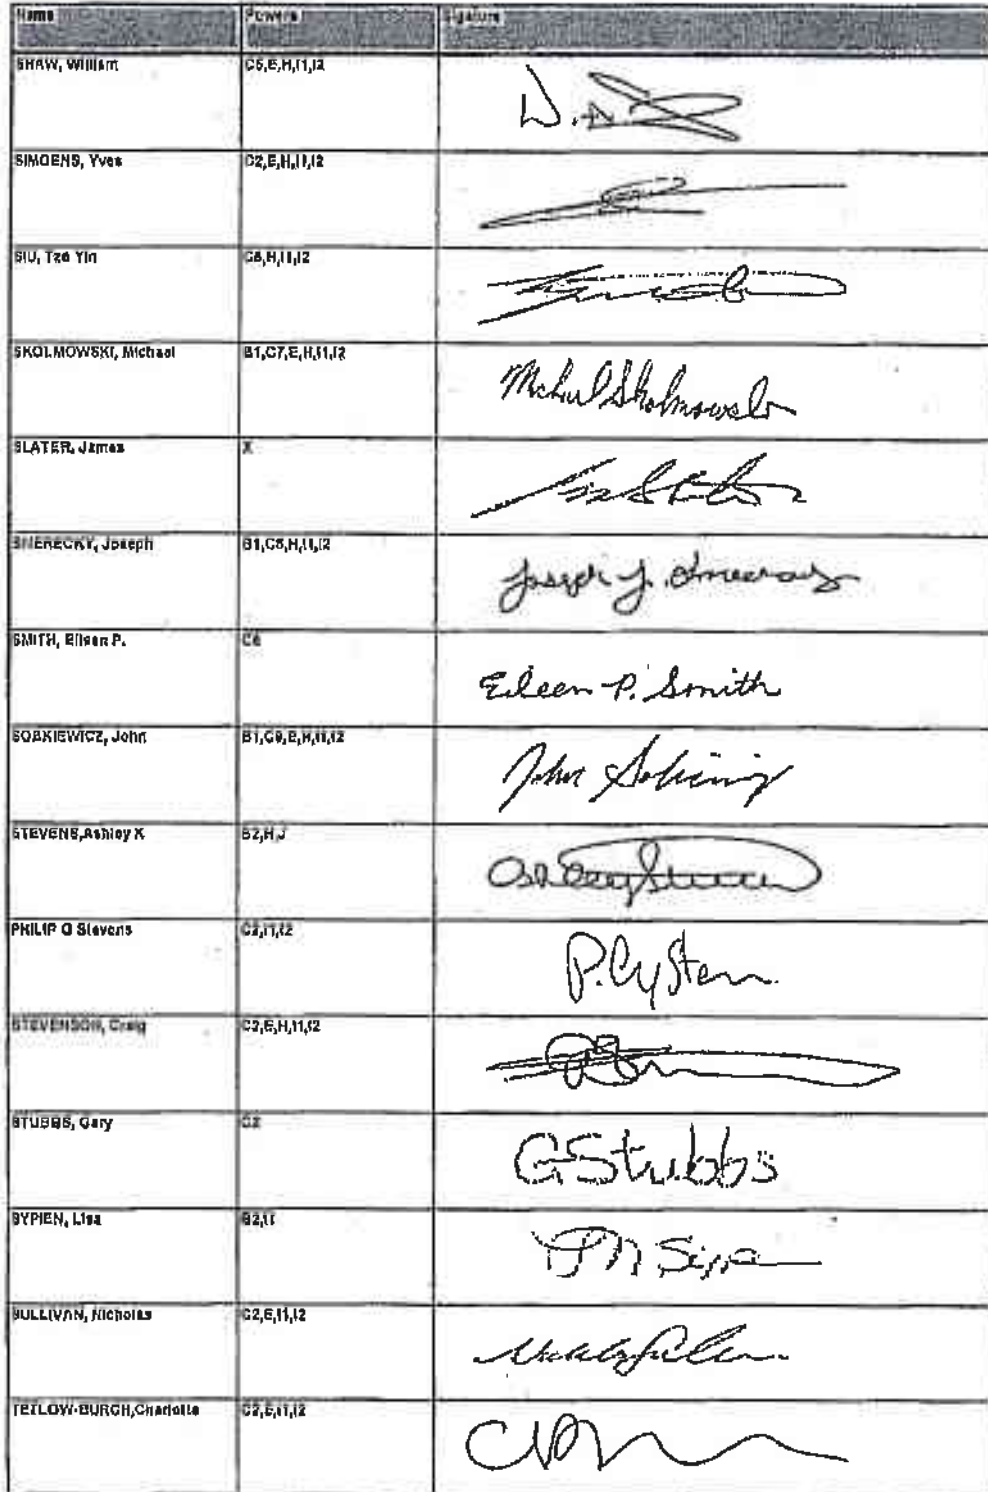 Name Powers Signature
SHAW, William C5,E,H,I1,I2
SIMOENS, Yves C2,E,H,I1,I2
SIU, Tze Yin H,I1,I2
SKOLMOWSKI, Michael B1,C7,E,H,I1,I2
Michael Skolmowski
SLATER, James X
SMERECKY, Joseph B1,C5,H,I1,I2
Joseph J. Smerecky
SMITH, Eileen P.
Eileen P. Smith
SOBKIEWICZ, John B1,C9,E,H,I1,I2
John
STEVENS,Ashley K B2,H,J
Ashley Stevens
PHILIP G Stevens C2,I1,I2
STEVENSON, Craig C2,E,H,I1,I2
STUBBS, Gary C2
G Stubbs
SYPIEN, Lisa B2,I1
SULLIVAN, Nicholas C2,E,I1,I2
TETLOW-BURGH,Charlotte C2,E,I1,I2